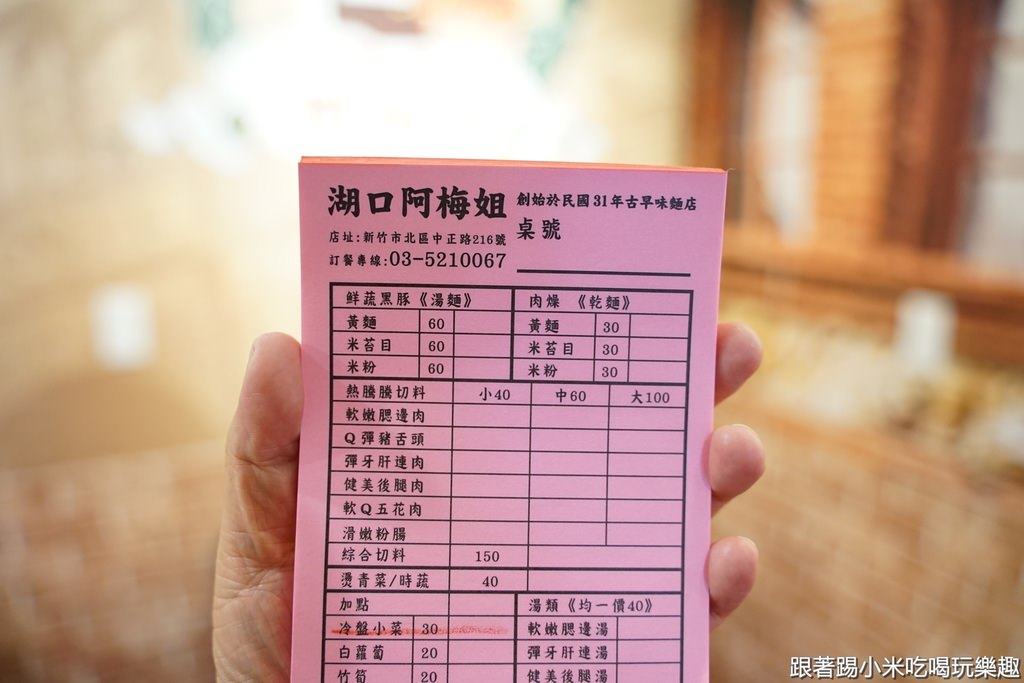 湖口阿梅姐 創始於民國31年古早味麵店
店址:新竹市北區中正路216號 桌號
訂餐專線:03-5210067
鮮蔬黑豚《湯麵》 肉燥 《乾麵》
黃麵 60 黃麵 30
米苔目 60 米苔目 30
米粉 60 米粉 30
熱騰騰切料 小40 中60 大100
軟嫩腮邊肉
Q彈豬舌頭
彈牙肝連肉
健美後腿肉
軟Q五花肉
滑嫩粉腸
綜合切料 150
燙青菜/時蔬 40
加點 湯類《均一價40》
冷盤小菜 30 軟嫩腮邊湯
白蘿蔔 20 彈牙肝連湯
竹筍 20 健美後腿湯
跟著踢小米吃喝玩樂趣